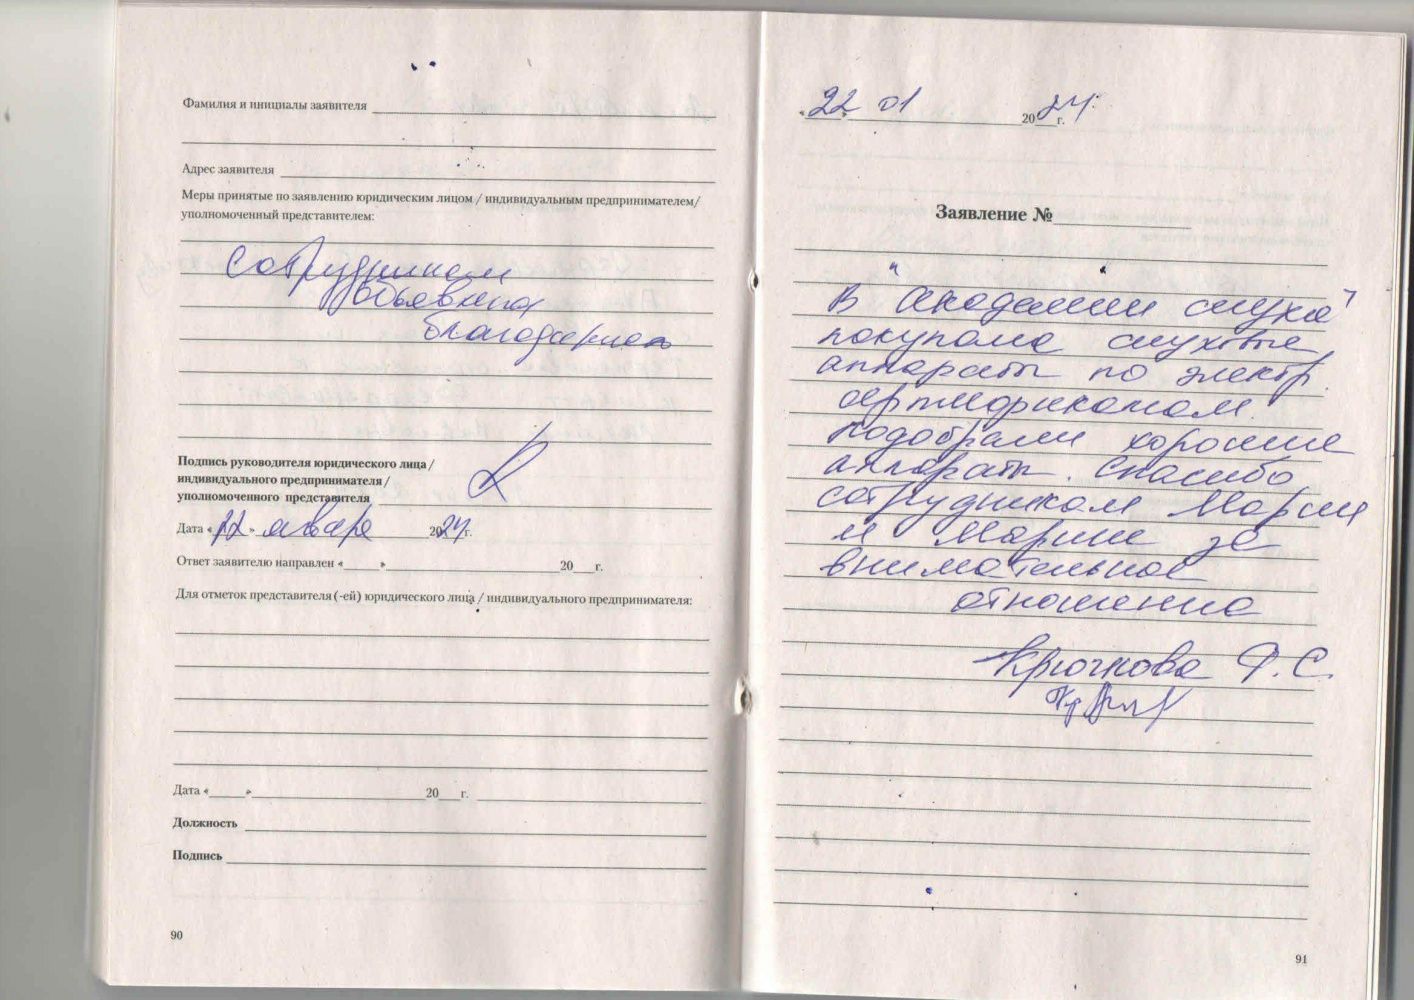 Фамилия и инициалы заявителя
Адрес заявителя
Меры принятые по заявлению юридическим лицом / индивидуальным предпринимателем/
уполномоченный представителем:
Сотрудникам
объявлена
благодарность
Подпись руководителя юридического лица /
индивидуального предпринимателя /
уполномоченного представителя
Дата «22» января 2024г.
Ответ заявителю направлен «» 20 г.
Для отметок представителя (-ей) юридического лица / индивидуального предпринимателя:
Дата «» 20 г.
Должность
Подпись
90
«22» 01 2024г.
Заявление №
В "Академии слуха"
покупала слуховые
аппараты по электр.
сертификатам.
Подобрали хорошие
аппараты. Спасибо
сотрудникам Марии
и Марине за
внимательное
отношение
Крючкова Ф.С.
91